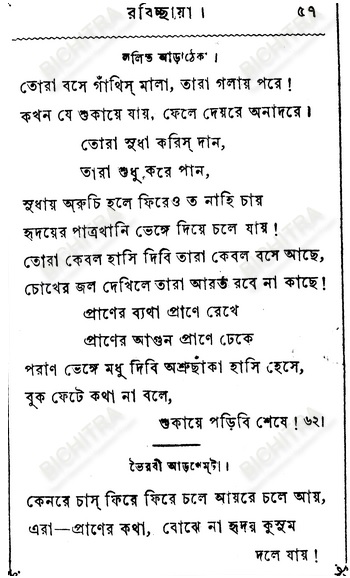 রবিচ্ছায়া । ৫৭
ললিত আড়াঠেক' ।
তোরা বসে গাঁথিস্ মালা, তারা গলায় পরে !
কখন যে শুকায়ে যায়, ফেলে দেয়রে অনাদরে ।
তোরা সুধা করিস্ দান,
তারা শুধু করে পান,
সুধায় অরুচি হলে ফিরেও ত নাহি চায়
হৃদয়ের পাত্রখানি ভেঙ্গে দিয়ে চলে যায় !
তোরা কেবল হাসি দিবি তারা কেবল বসে আছে,
চোখের জল দেখিলে তারা আরত রবে না কাছে !
প্রাণের ব্যথা প্রাণে রেখে
প্রাণের আগুন প্রাণে ঢেকে
পরাণ ভেঙ্গে মধু দিবি অশ্রুছাঁকা হাসি হেসে,
বুক ফেটে কথা না বলে,
শুকায়ে পড়িবি শেষে ! ৬২।
ভৈরবী আড়খেম্টা ।
কেনরে চাস্ ফিরে ফিরে চলে আয়রে চলে আয়,
এরা—প্রাণের কথা, বোঝে না হৃদয় কুসুম
দলে যায় !
BICHITRA